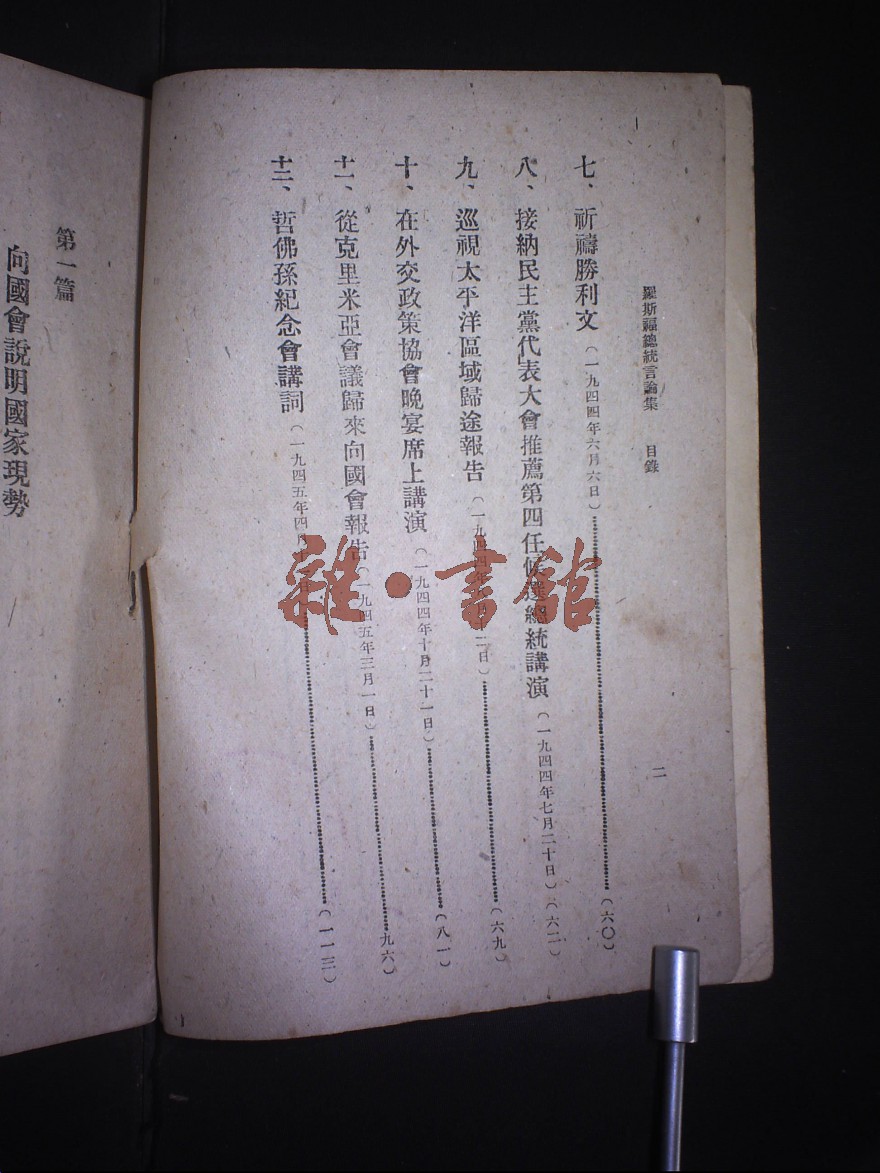 羅斯福總統言論集 目錄 二
七、祈禱勝利文(一九四四年六月六日)(六〇)
八、接納民主黨代表大會推薦第四任候選總統講演(一九四四年七月二十日)(六二)
九、巡視太平洋區域歸途報告(一九四四年月十二日)(六九)
十、在外交政策協會晚宴席上講演(一九四四年十月二十一日)(八一)
十一、從克里米亞會議歸來向國會報告(一九四五年三月一日)九六)
十二、哲佛孫紀念會講詞(一九四五年四月十日)(一一三)
第一篇
向國會說明國家現勢
雜·書館